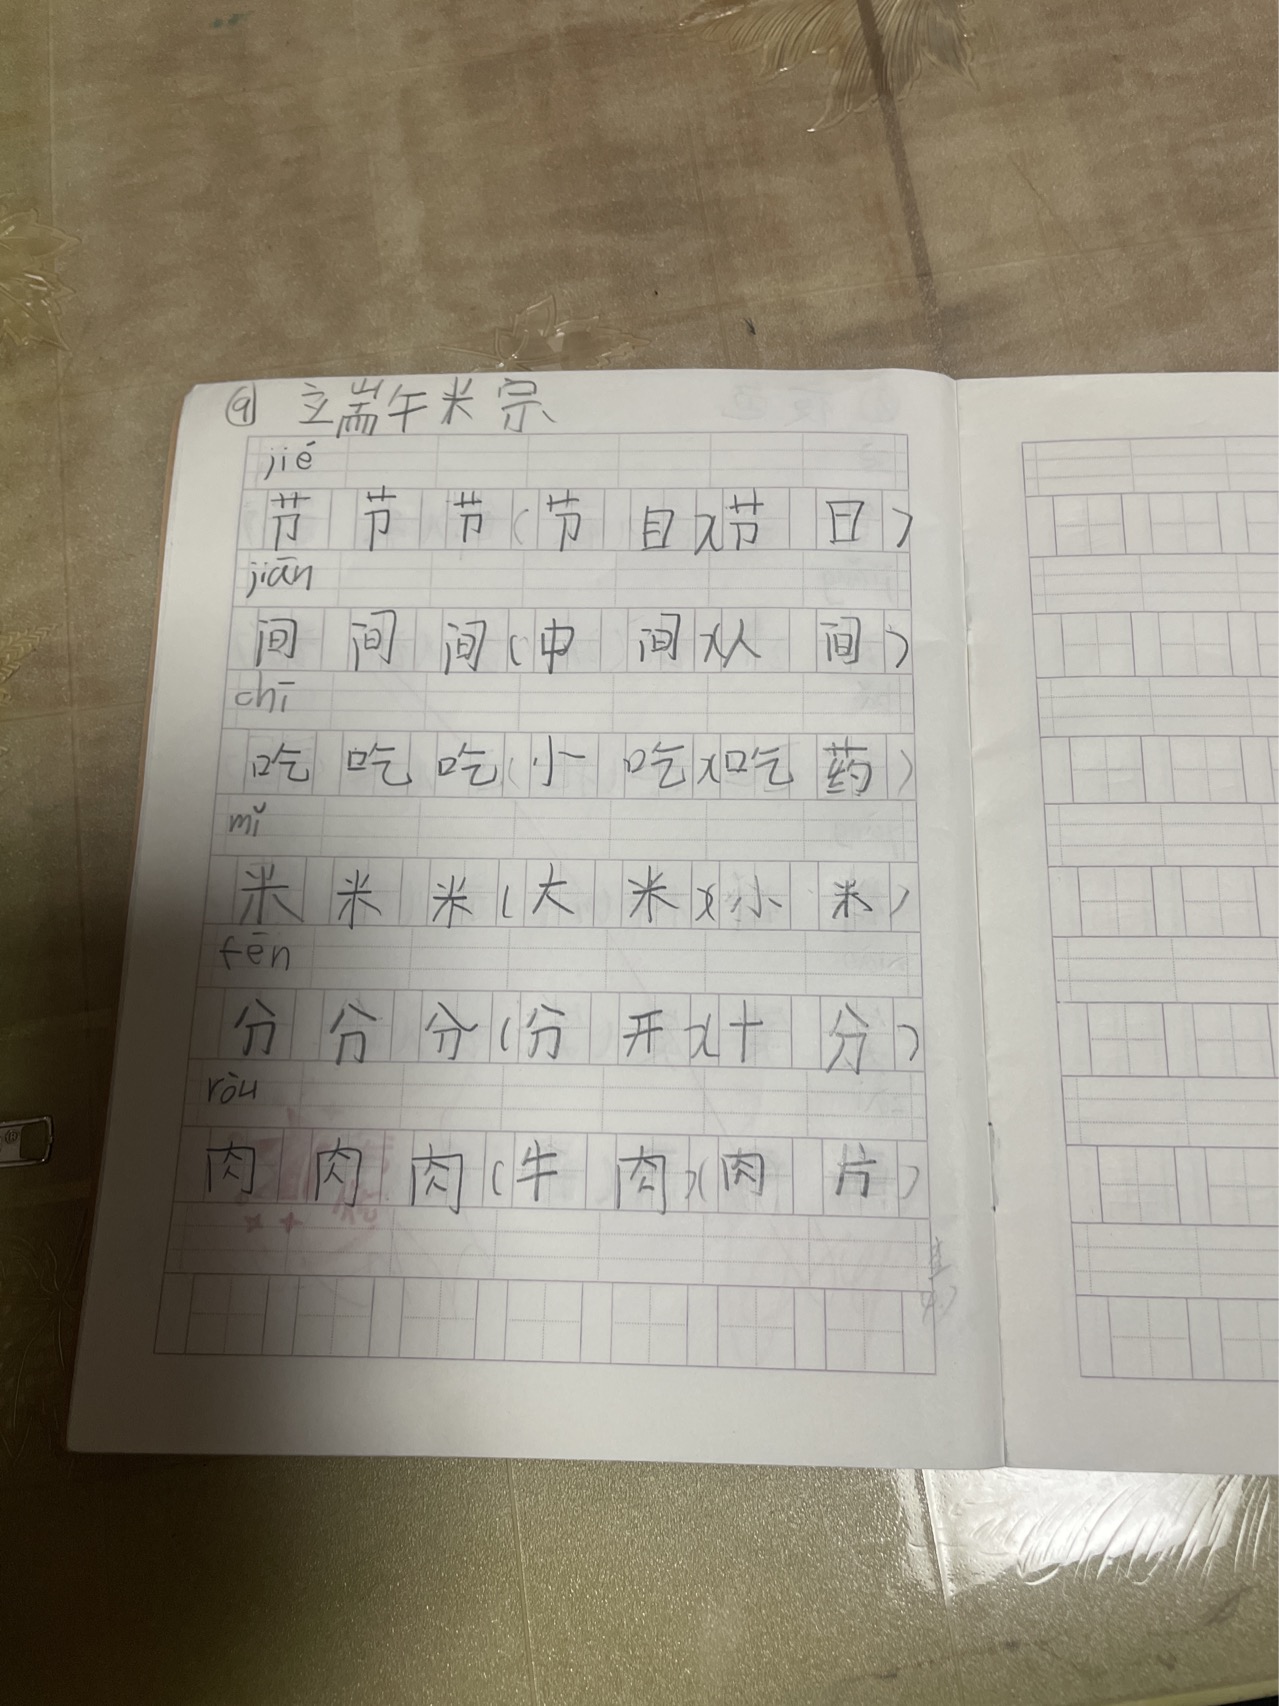 ⑨ 端午粽
jié
节 节 节(节 目)(节 日)
jiān
间 间 间(中 间)(人 间)
chī
吃 吃 吃(小 吃)(吃 药)
mǐ
米 米 米(大 米)(小 米)
fēn
分 分 分(分 开)(十 分)
ròu
肉 肉 肉(牛 肉)(肉 片)